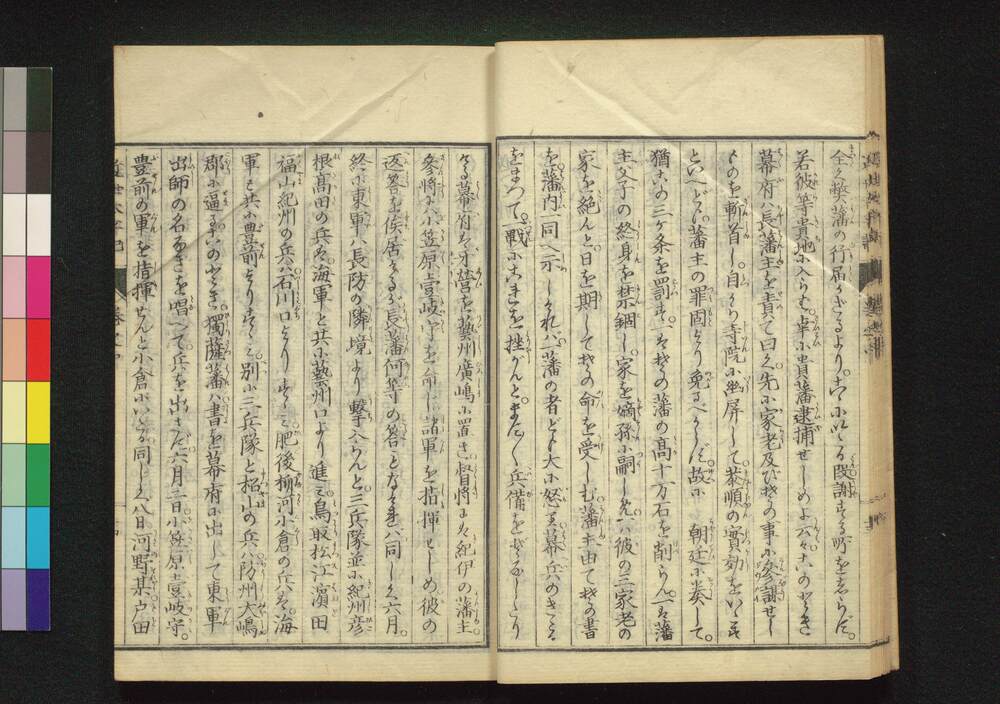 全く弊藩の行届かざるより。こゝにいたる。陳謝する所をしらず。
若彼等貴地に入らむ。卒に貴藩逮捕せしめよ云々。かゝのごとき
幕府ハ長藩主を責て曰く。先に家老及びその事に參謀せし
ものを斬首し。自から寺院に幽屏して。恭順の實効をいたす
といへども。藩主の罪固より免るべからず。故に 朝廷に奏して。
猶左の三ケ条を罰す。一そ其の藩の高十万石を削らん。一ツ藩
主父子の終身を禁錮し。家を嫡孫に嗣しめん。一ツ彼の三家老の
家を絶んと。日を期してその命を受しむ。藩主由てその書
を。藩内一同へ示しければ。一藩の者ども大に怒り。幕兵のきたる
をまつて。一戰にこれを挫がんと。またく兵備をぞなしたり
ける。幕府は牙營を藝州廣嶋に置き。督將には紀伊の藩主。
參將に小笠原壹岐守を命じ。諸軍を指揮せしめ。彼の
返答を俟居たるが。長藩何等の答へもなければ。同しく六月。
終に東軍ハ長防の隣境より撃入らんと。三兵隊並に紀州彦
根髙田の兵は。海軍と共に藝州口より進ミ。鳥取松江濵田
福山紀州の兵は石川口よりすゝミ。肥後柳河小倉の兵は。海
軍と共に豊前よりすゝミ。別に三兵隊と松山の兵は。防州大嶋
郡に逼る。このとき。獨薩藩ハ書を幕府に出して。東軍
出師の名なきを唱へて。兵を出さず。六月二日。小笠原壹岐守。
豊前の軍を指揮せんと小倉にいたる。同しく八日。河野某。戸田